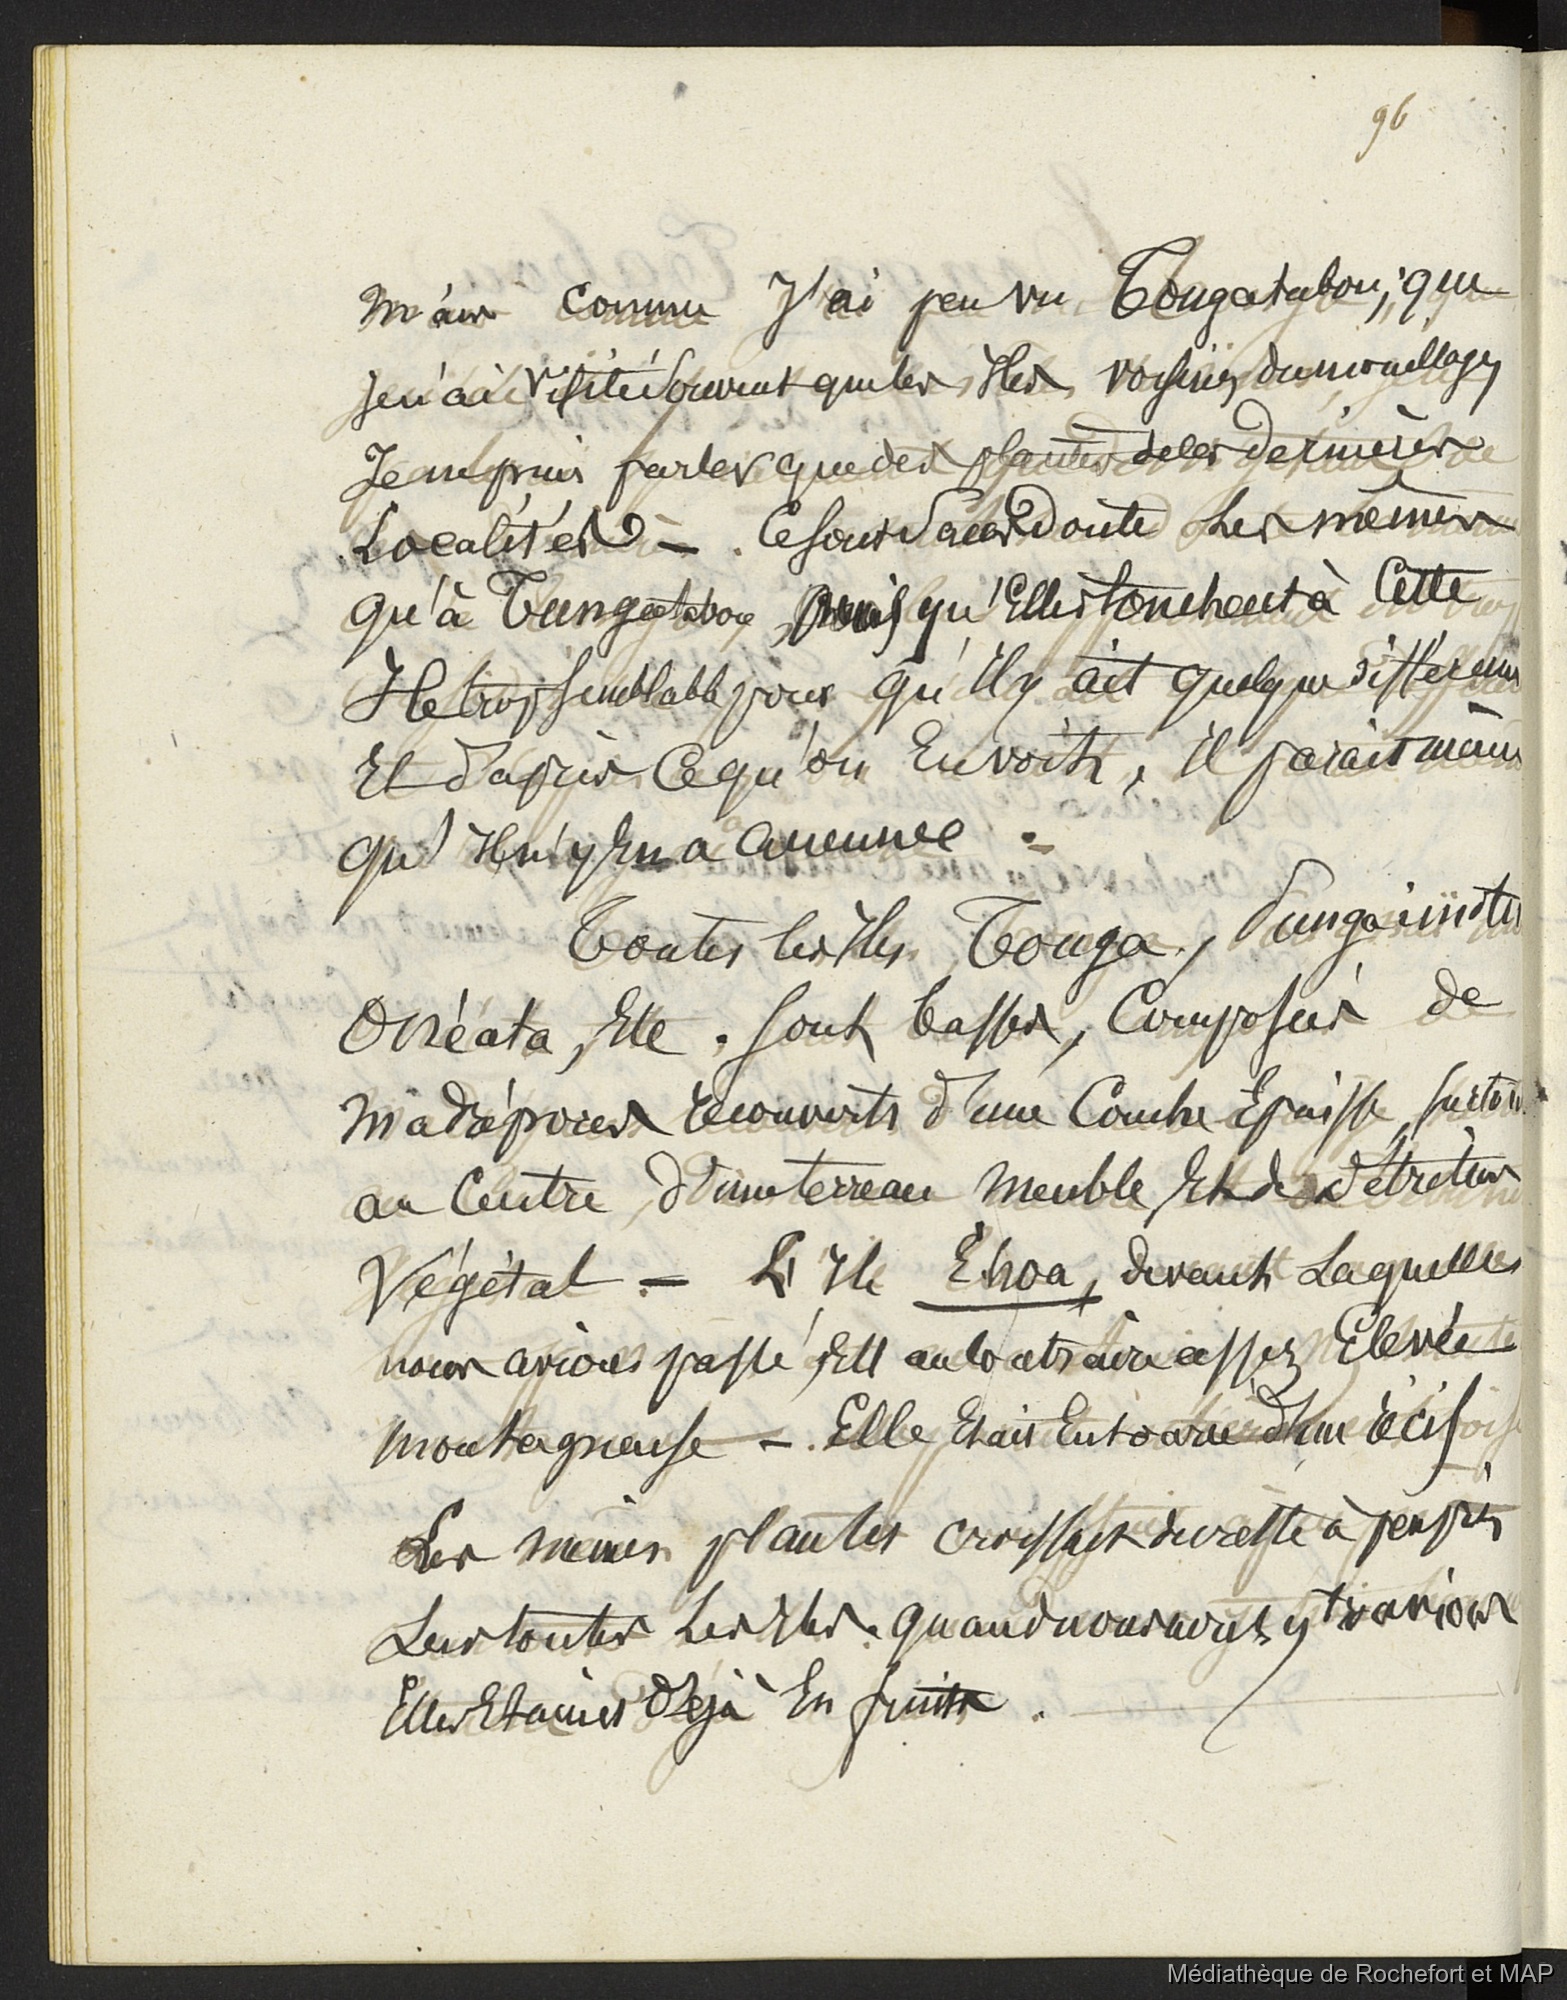 96
Mais comme J'ai peu vu Tongatabou, que
je n'ai visité souvent que les Iles voisines du mouillage,
Je ne puis parler que des plantes de ces dernières
Localités - Ce sont sans doute Les mêmes
qu'à Tungatabou, puisqu'Elles touchent à Cette
Ile trop semblable pour qu'Il y ait quelque différence
Et d'après Ce qu'on En voit, il parait même
qu'Il n'y En a aucunne.
Toutes les Iles Tonga,
Onéata, Etc. sont basses, Composées de
Madrépores recouverts d'une Couche Epaisse, surtout
au Centre, d'un terreau Meuble Et de détritus
Végétal - L'Ile Éhoa, devant Laquelle
nous avions passé, Est au Contraire assez Elevée
Montagneuse - Elle Etait Entourée d'un récif
Les mêmes plantes croissent du reste à peu près
dans toutes Les Iles. quand nous nous y trouvions
Elles Etaient Déjà En fruits.
Médiathèque de Rochefort et MAP